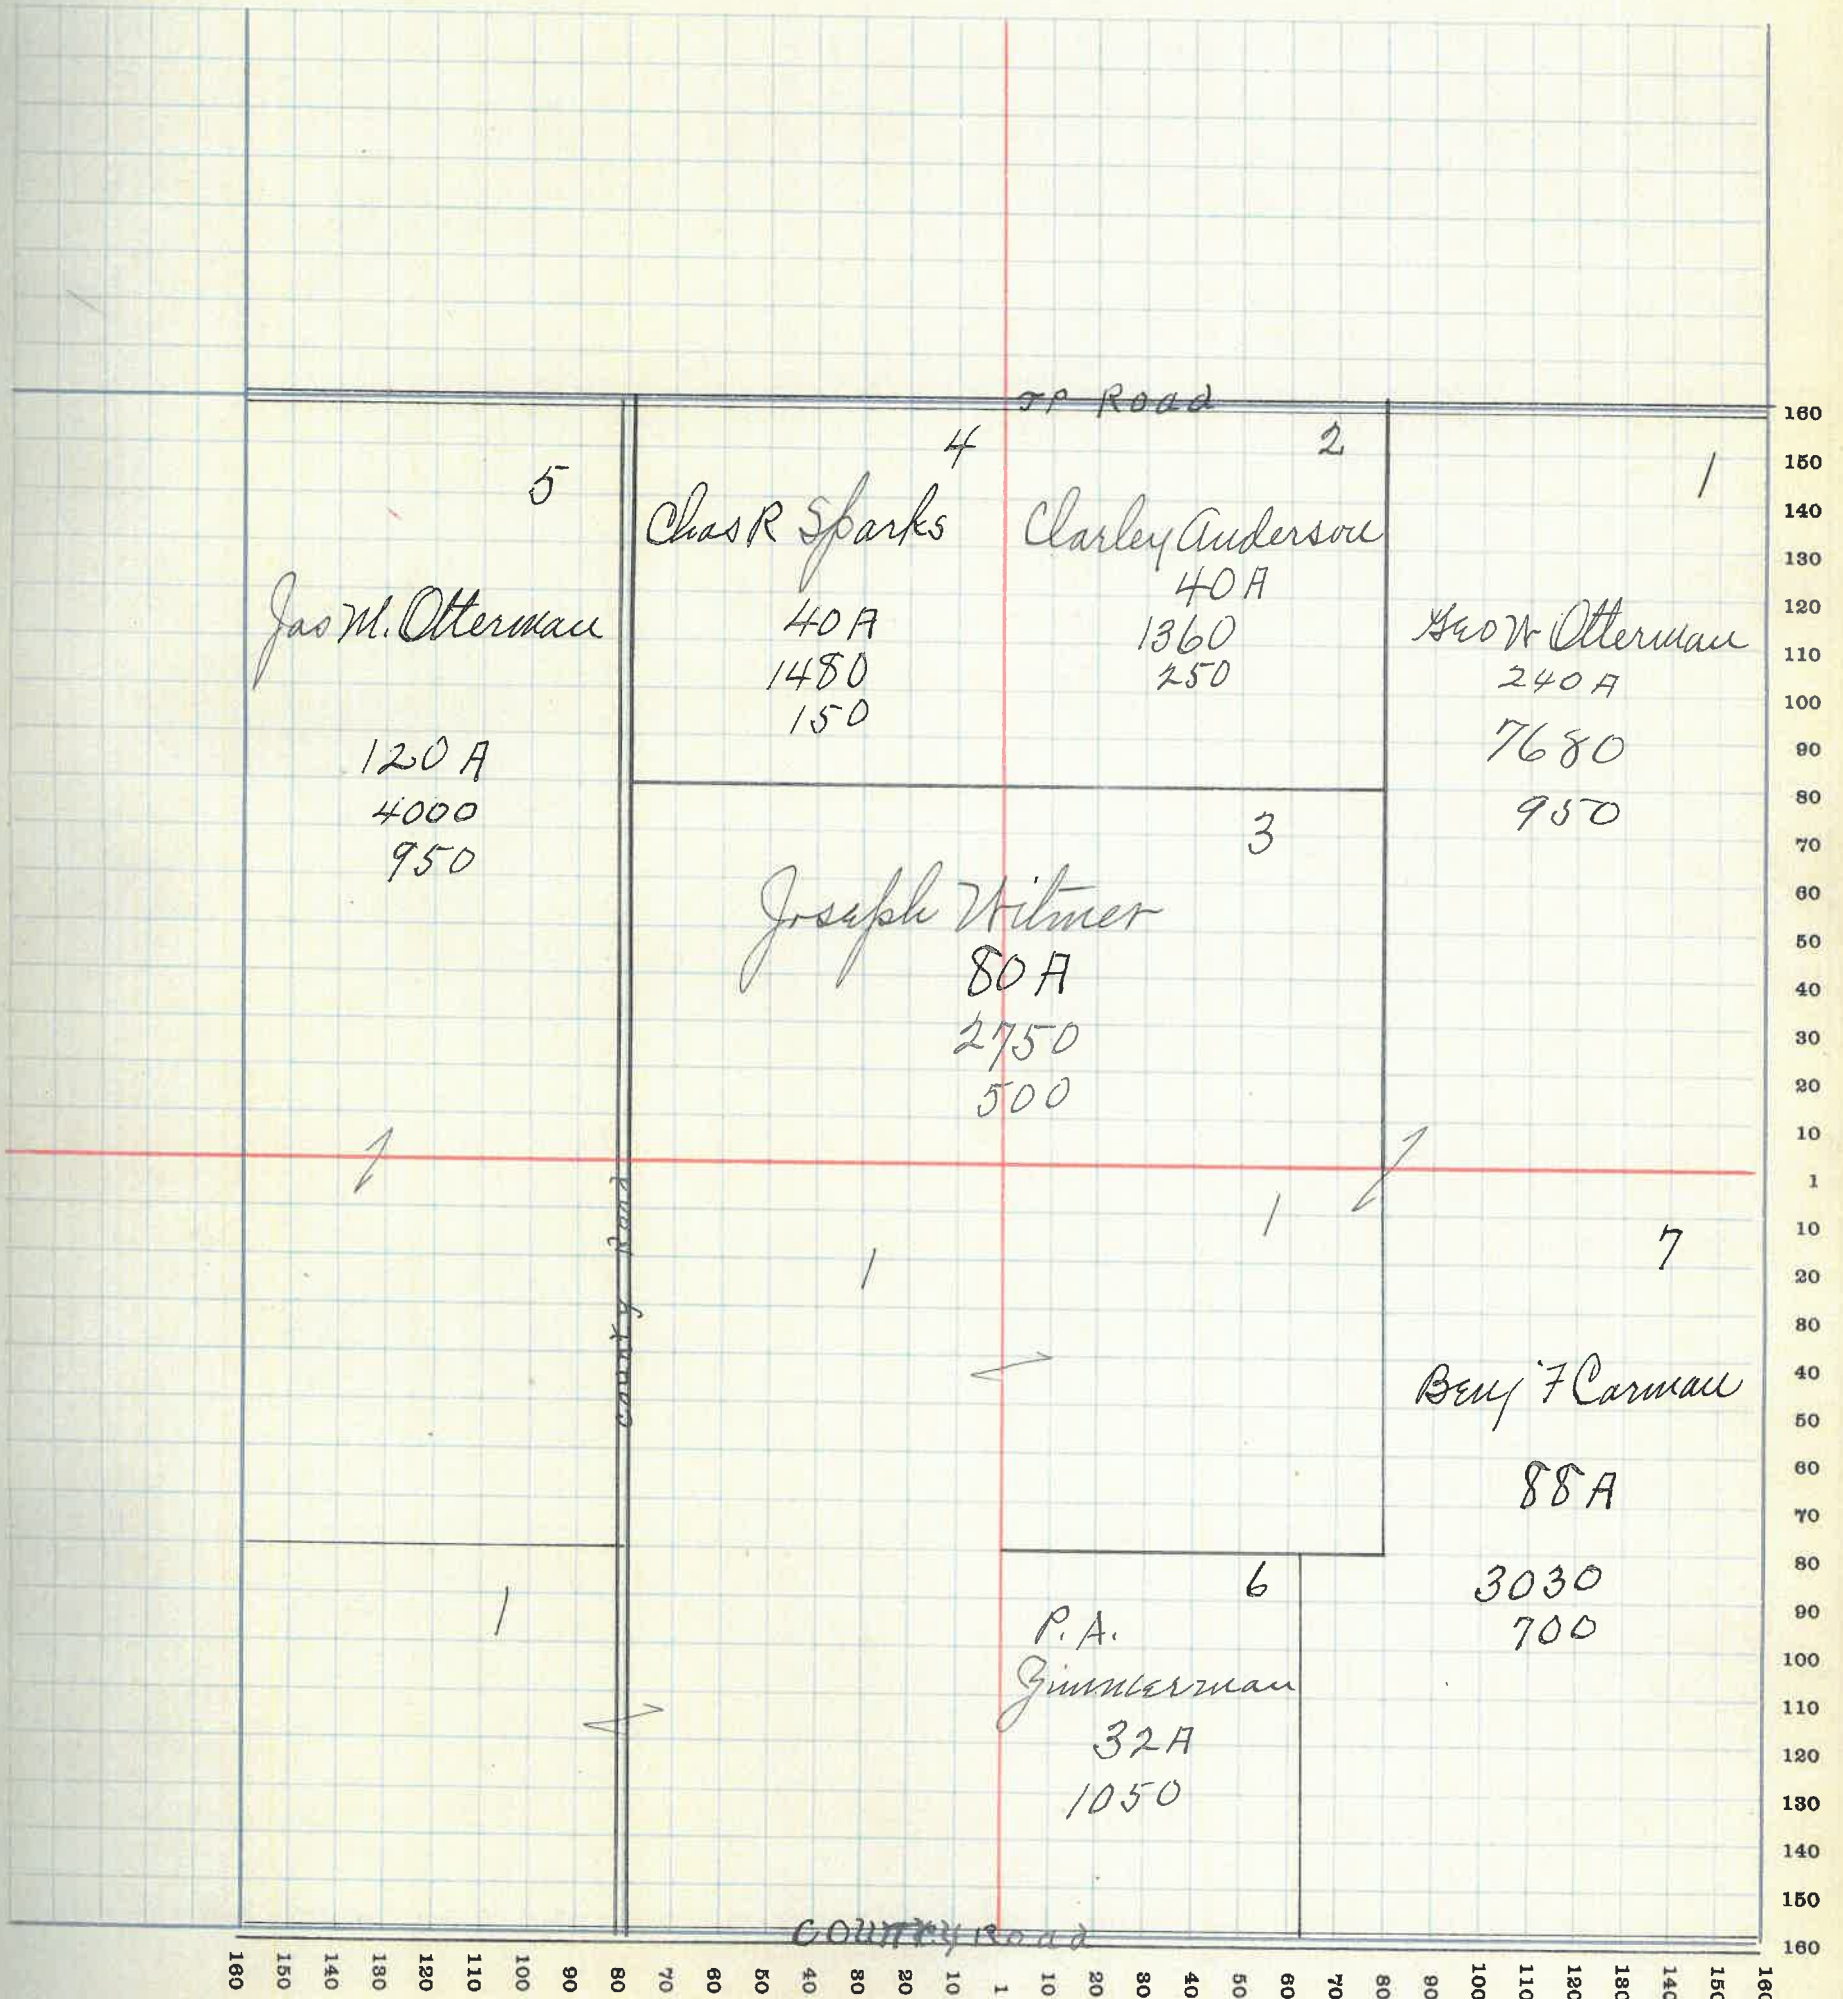 TP Road
5
Jas M. Otterman
120 A
4000
950
4
Chas R Sparks
40 A
1480
150
2
Charley Anderson
40 A
1360
250
1
Geo W Otterman
240 A
7680
950
3
Joseph Witmer
80 A
2750
500
1
1
County Road
7
Benj F Carman
88 A
3030
700
1
6
P. A.
Zimmerman
32 A
1050
County Road
160
150
140
130
120
110
100
90
80
70
60
50
40
30
20
10
1
10
20
80
40
50
60
70
80
90
100
110
120
130
140
150
160
160 150 140 130 120 110 100 90 80 70 60 50 40 80 20 10 1 10 20 80 40 50 60 70 80 90 100 110 120 130 140 150 160